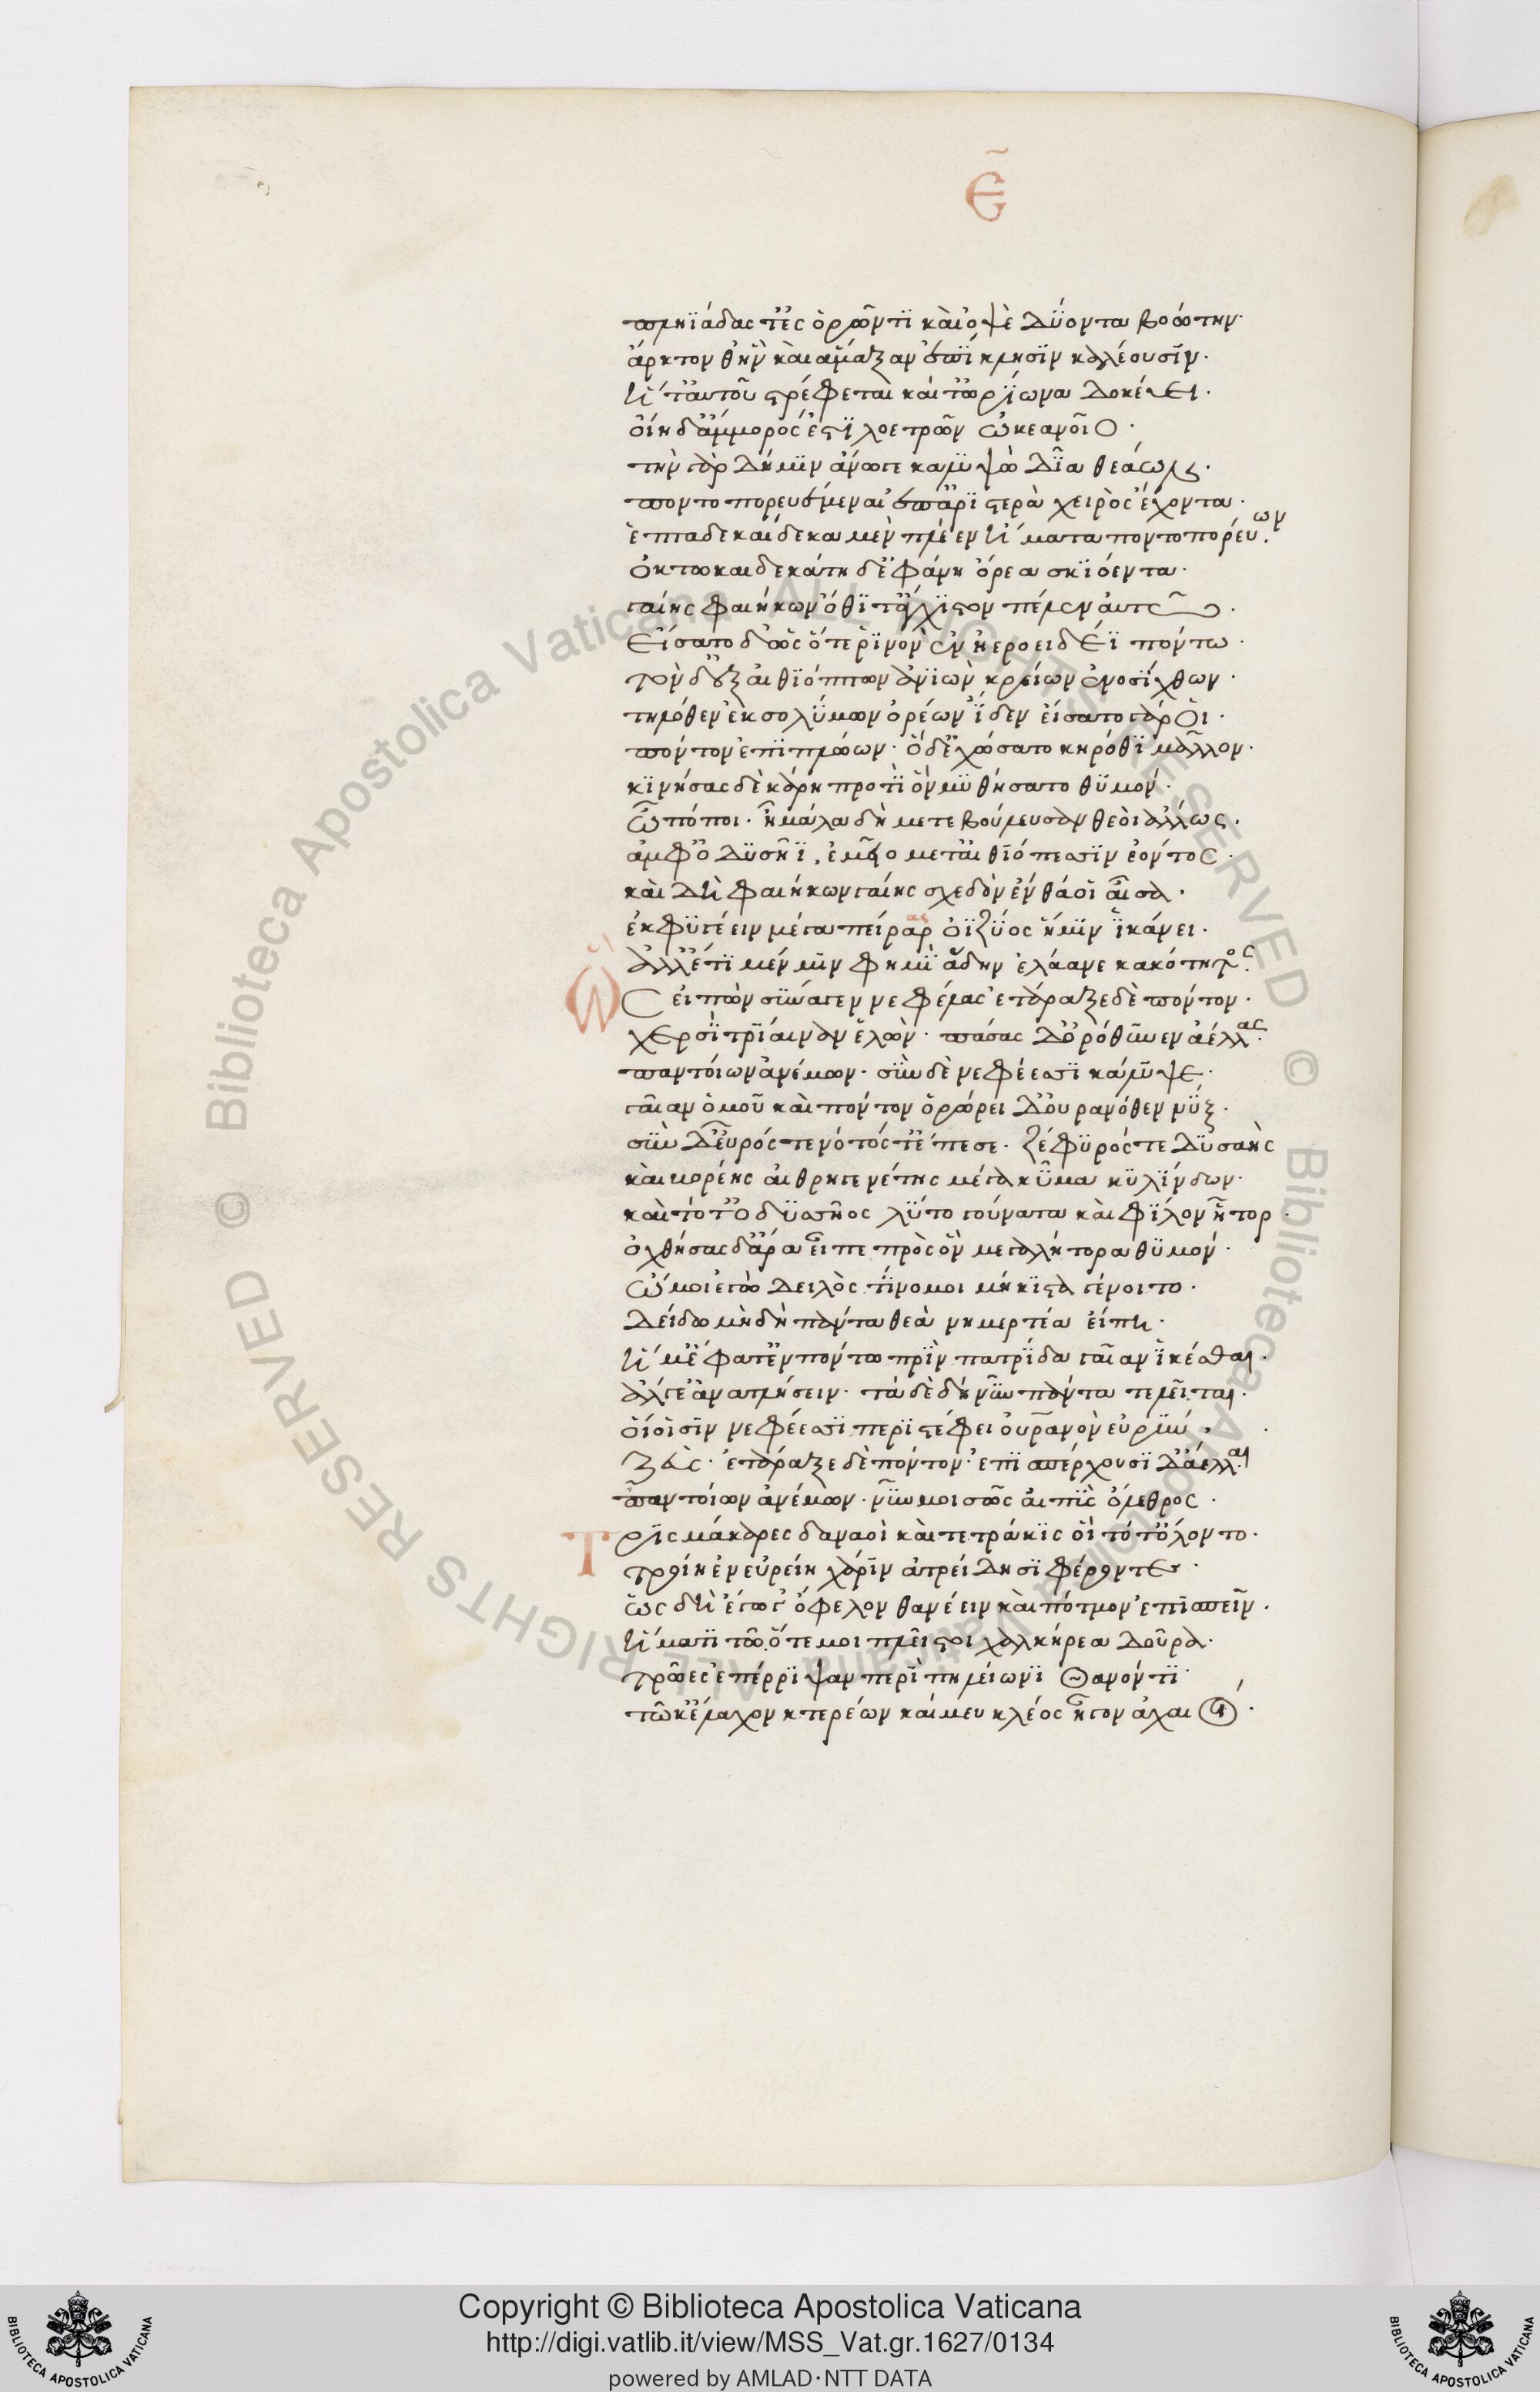 ε
πληϊάδας τ' ἐσορῶντι καὶ ὀψὲ δύοντα βοώτην·
ἄρκτον θ' ἣν καὶ ἅμαξαν ἐπίκλησιν καλέουσιν·
ἥ τ' αὐτοῦ στρέφεται καὶ τ' ὠρίωνα δοκεύει·
οἴη δ' ἄμμορός ἐστι λοετρῶν ὠκεανοῖο·
τὴν γὰρ δή μιν ἄνωγε καλυψὼ δῖα θεάων·
ποντοπορευέμεναι ἐπ' ἀριστερὰ χειρὸς ἔχοντα·
ἑπτὰ δὲ καὶ δέκα μὲν πλέεν ἤματα ποντοπορεύων·
ὀκτωκαιδεκάτη δ' ἐφάνη ὄρεα σκιόεντα·
γαίης φαιήκων ὅθι τ' ἄγχιστον πέλεν αὐτῶ·
εἴσατο δ' ὡς ὅτε ῥινὸν ἐν ἠεροειδέϊ πόντω·
τὸν δ' ἐξ αἰθιόπων ἀνιὼν κρείων ἐνοσίχθων·
τηλόθεν ἐκ σολύμων ὀρέων ἴδεν εἴσατο γάρ οἱ·
πόντον ἐπιπλώων· ὁ δ' ἐχώσατο κηρόθι μᾶλλον·
κινήσας δὲ κάρη προτὶ ὃν μυθήσατο θυμόν·
ὦ πόποι· ἦ μάλα δὴ μετεβούλευσαν θεοὶ ἄλλως·
ἀμφ' ὀδυσῆϊ, ἐμεῖο μετ' αἰθιόπεσσιν ἐόντος·
καὶ δὴ φαιήκων γαίης σχεδὸν ἔνθά οἱ αἶσα·
ἐκφυγέειν μέγα πεῖραρ ας ὀϊζύος ἥ μιν ἱκάνει·
ἀλλ' ἔτι μέν μιν φημὶ ἄδην ἐλάαν κακότητος·
Ὣς εἰπὼν σύναγεν νεφέλας ἐτάραξε δὲ πόντον·
χερσὶ τρίαιναν ἑλών· πάσας δ' ὀρόθυνεν ἀέλλας·
παντοίων ἀνέμων· σὺν δὲ νεφέεσσι κάλυψε·
γαῖαν ὁμοῦ καὶ πόντον ὀρώρει δ' οὐρανόθεν νύξ·
σὺν δ' εὖρός τε νότός τ' ἔπεσε· ζέφυρός τε δυσαὴς
καὶ βορέης αἰθρηγενέτης μέγα κῦμα κυλίνδων·
καὶ τότ' ὀδυσσῆος λύτο γούνατα καὶ φίλον ἦτορ·
ὀχθήσας δ' ἄρα εἶπε πρὸς ὃν μεγαλήτορα θυμόν·
ὤ μοι ἐγὼ δειλὸς τί νύ μοι μήκιστα γένοιτο·
δείδω μὴ δὴ πάντα θεὰ νημερτέα εἴπη·
ἥ μ' ἔφατ' ἐν πόντω πρὶν πατρίδα γαῖαν ἱκέσθαι·
ἄλγε' ἀναπλήσειν· τὰ δὲ δὴ νῦν πάντα τελεῖται·
οἵοισιν νεφέεσσι περιστέφει οὐρανὸν εὐρὺν·
ζεὺς· ἐτάραξε δὲ πόντον· ἐπισπέρχουσι δ' ἄελλαι
παντοίων ἀνέμων· νῦν μοι σῶς αἰπὺς ὄλεθρος·
Τρὶς μάκαρες δαναοὶ καὶ τετράκις οἳ τότ' ὄλοντο·
τροίη ἐν εὐρείη χάριν ἀτρείδησι φέροντες·
ὡς δὴ ἔγωγ' ὄφελον θανέειν καὶ πότμον ἐπισπεῖν·
ἤματι τῶ ὅτε μοι πλεῖστοι χαλκήρεα δοῦρα·
τρῶες ἐπέρριψαν περὶ πηλείωνι θανόντι·
τῶ κ' ἔλαχον κτερέων καί μευ κλέος ἦγον ἀχαιοί·
Copyright © Biblioteca Apostolica Vaticana
http://digi.vatlib.it/view/MSS_Vat.gr.1627/0134
powered by AMLAD·NTT DATA